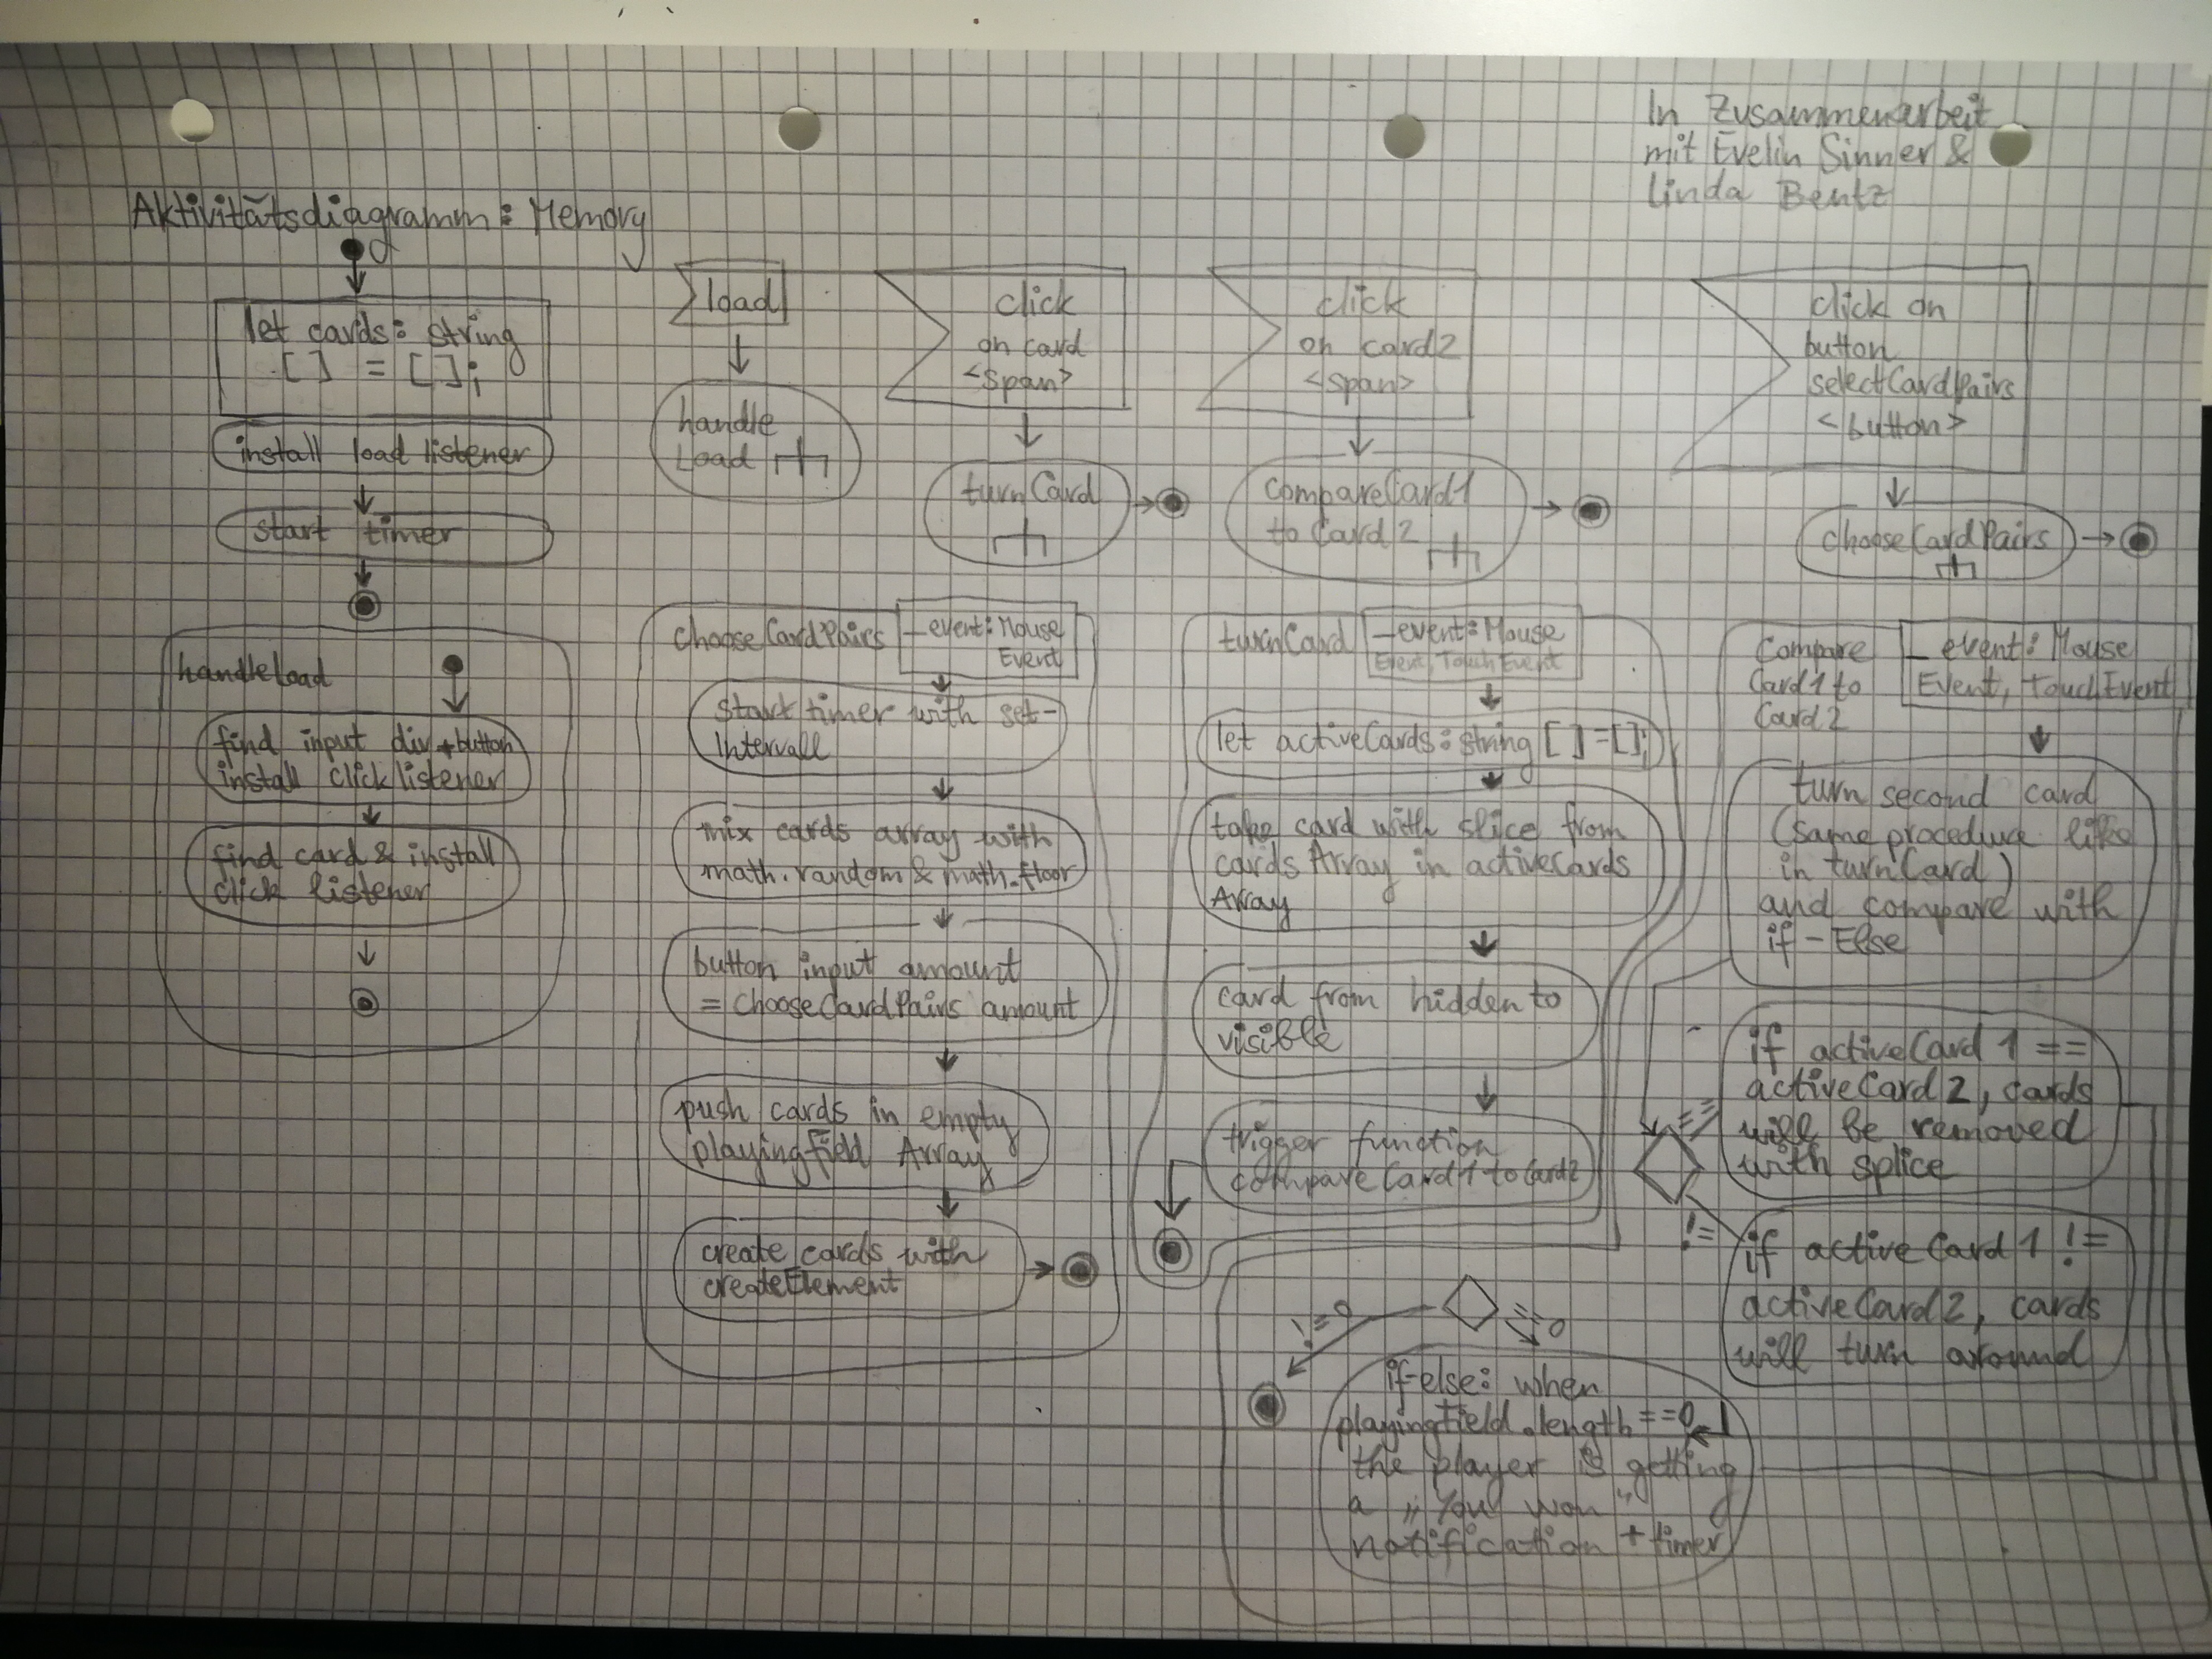 In Zusammenarbeit
mit Evelin Sinner &
Linda Bentz
Aktivitätsdiagramm: Memory
let cards: string
[] = [];
install load listener
start timer
load
handle
Load
click
on card
<span>
turnCard
click
on card2
<span>
compareCard1
to Card2
click on
button
selectCardPairs
<button>
chooseCardPairs
handleLoad
find input div+button
install clicklistener
find card & install
click listener
chooseCardPairs
_event: Mouse
Event
start timer with set-
Intervall
mix cards array with
math.random & math.floor
button input amount
= chooseCardPairs amount
push cards in empty
playingfield Array
create cards with
createElement
turnCard
_event: Mouse
Event, TouchEvent
let activeCards: string [] = [];
take card with slice from
cards Array in activeCards
Array
card from hidden to
visible
trigger function
compareCard1toCard2
Compare
Card1 to
Card2
_event: Mouse
Event, TouchEvent
turn second card
(same procedure like
in turnCard)
and compare with
if-Else
==
if activeCard1 ==
activeCard2, cards
will be removed
with splice
!=
if activeCard1 !=
activeCard2, cards
will turn around
!=0
==0
if-else: when
playingfield.length==0
the player is getting
a „You won"
notification + timer